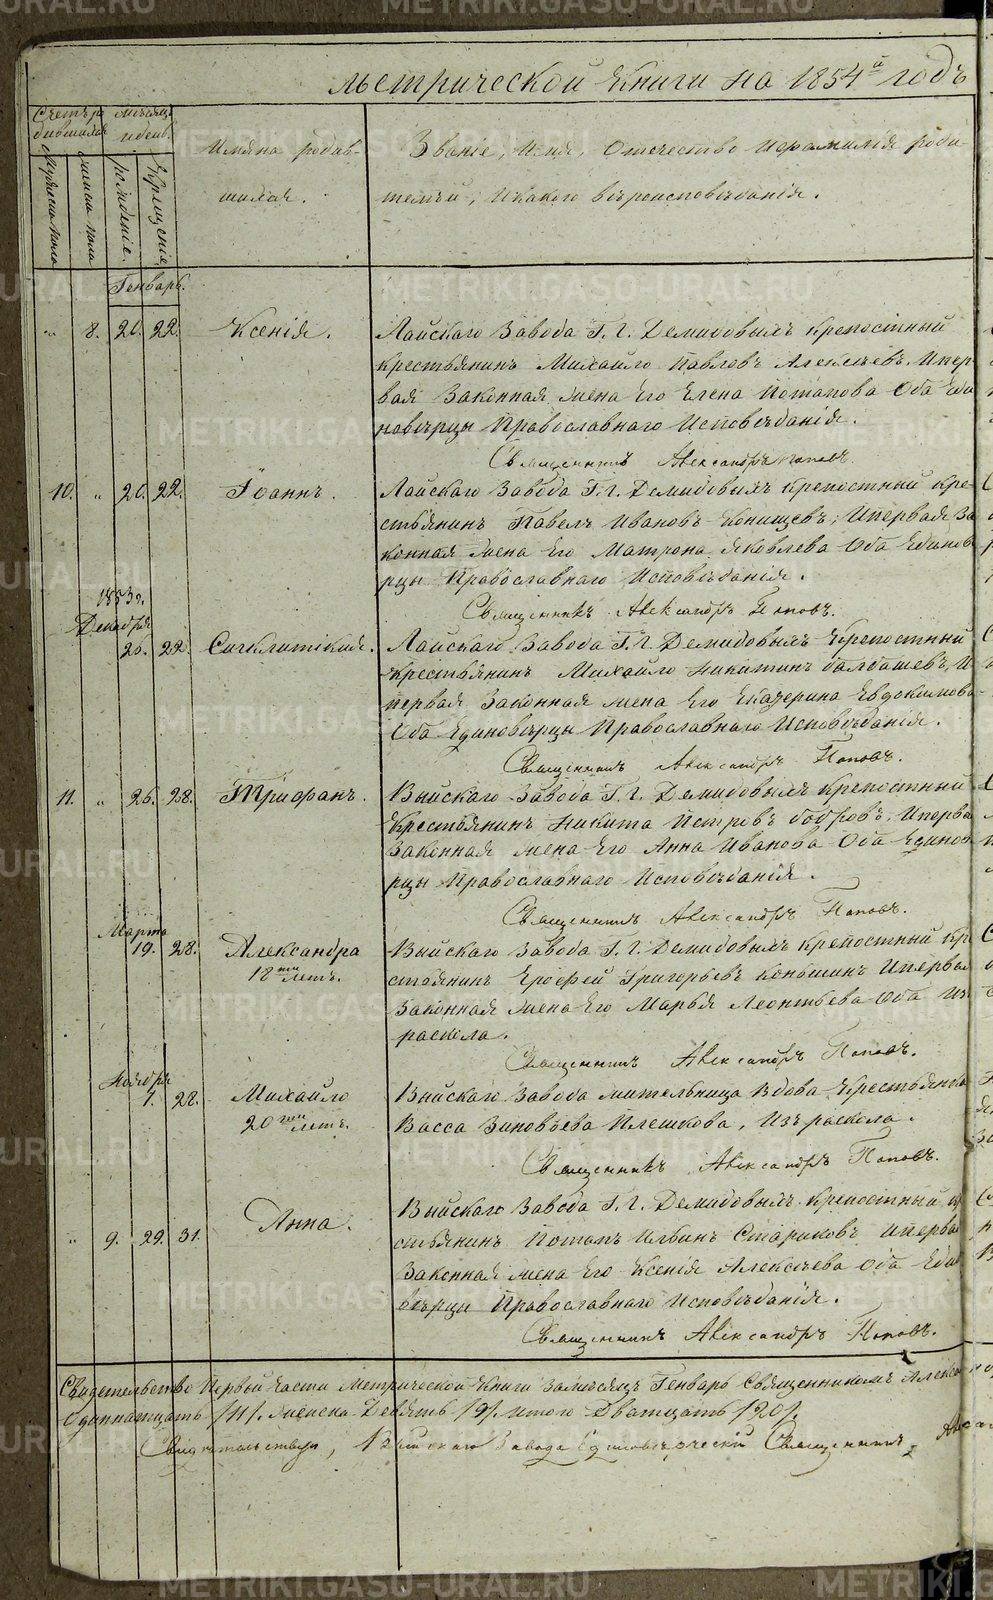 Метрической Книги на 1854й годъ
Счетъ ро
дившихся
Мѣсяцъ
и день.
Мужеска пола
Женска пола
рожденiе.
Крещенiе
Имяна родив-
шихся.
Званiе, Имя, Отчество и фамилiя роди-
телей, и какого вѣроисповѣданiя.
Генварь.
" 8. 20. 22. Ксенiя.
Лайскаго Завода Г. Г. Демидовыхъ крепостный
крестьянинъ Михайло Павловъ Алексѣевъ, и пер
вая Законная жена Его Елена Потапова Оба Еди
новѣрцы Православнаго Исповѣданiя.
Священникъ Александръ Поповъ.
10. " 20. 22. Iоаннъ.
Лайскаго Завода Г. Г. Демидовыхъ крепостный кре-
стьянинъ Павелъ Ивановъ Конищевъ, и первая За
конная жена Его Матрона Яковлева Оба Единов
рцы Православнаго Исповѣданiя.
Священникъ Александръ Поповъ.
1853 г.
Декабря
26. 22. Сигклитикiя.
Лайскаго Завода Г. Г. Демидовыхъ Крепостный
крестьянинъ Михайло Никитинъ Балдашевъ, и
первая Законная жена Его Екатерина Евдокимова
Оба Единовѣрцы Православнаго Исповѣданiя.
Священникъ Александръ Поповъ.
11. " 26. 28. Трифанъ.
Выйскаго Завода Г. Г. Демидовыхъ крепостный
Крестьянинъ Никита Петровъ Бобровъ, и перва
Законная жена Его Анна Иванова Оба Единов
рцы Православнаго Исповѣданiя.
Священникъ Александръ Поповъ.
Марта
19. 28. Александра
18ти лѣтъ.
Выйскаго Завода Г. Г. Демидовыхъ крепостный кр
стьянинъ Ерофей Григорьевъ Коньшинъ и перва
Законная жена Его Марья Леонтьева Оба Из
раскола.
Священникъ Александръ Поповъ.
Ноября
1. 28. Михайло
20ти лѣтъ.
Выйскаго Завода жительница Вдова Крестьянка
Васса Зиновьева Плешкова, Изъ раскола.
Священникъ Александръ Поповъ.
" 9. 29. 31. Анна.
Выйскаго Завода Г. Г. Демидовыхъ крепостный к
стьянинъ Потапъ Ильинъ Стариковъ и перва
Законная жена Его Ксенiя Алексѣева Оба Еди
вѣрцы Православнаго Исповѣданiя.
Священникъ Александръ Поповъ.
Свидетельство Первой Части Метрической Книги за месяцъ Генварь Священникомъ Алекса
Одиннатцать /11/. Женска Девять /9/. итого Дватцать /20/.
Свидетельствую, Выйскаго Завода Единовѣрческiй Священникъ
METRIKI.GASU-URAL.RU